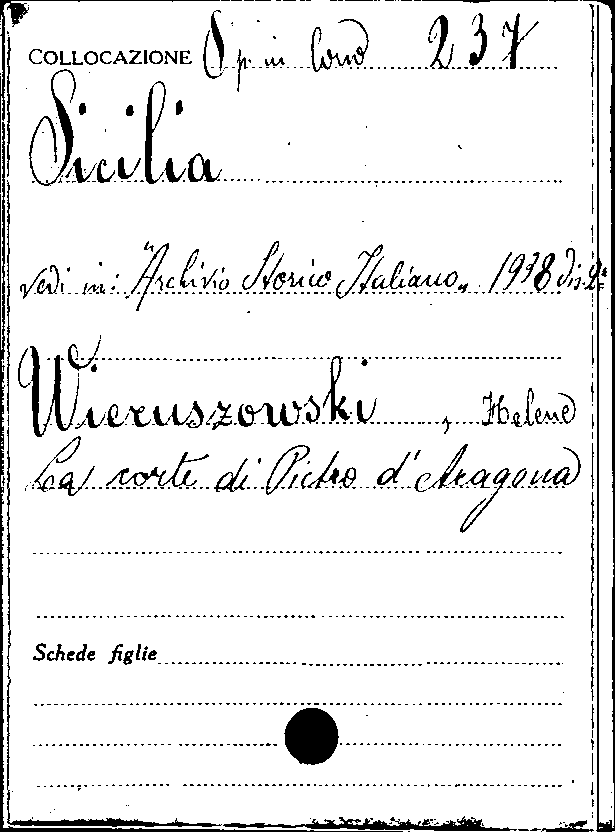 COLLOCAZIONE Sp in Cons 237
Sicilia
vedi in: "Archivio Storico Italiano„ 1938 dis. 2ª
Wieruszowski, Helene
La corte di Pietro d'Aragona
Schede figlie